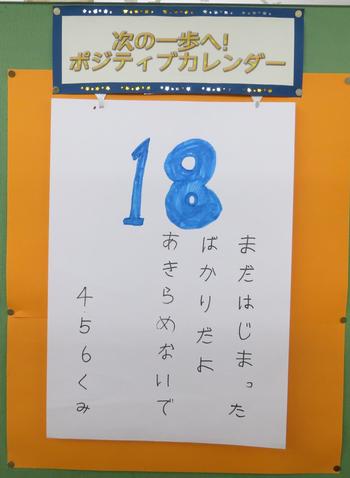 次の一歩へ!
ポジティブカレンダー
18
まだはじまった
ばかりだよ
あきらめないで
4.5６くみ